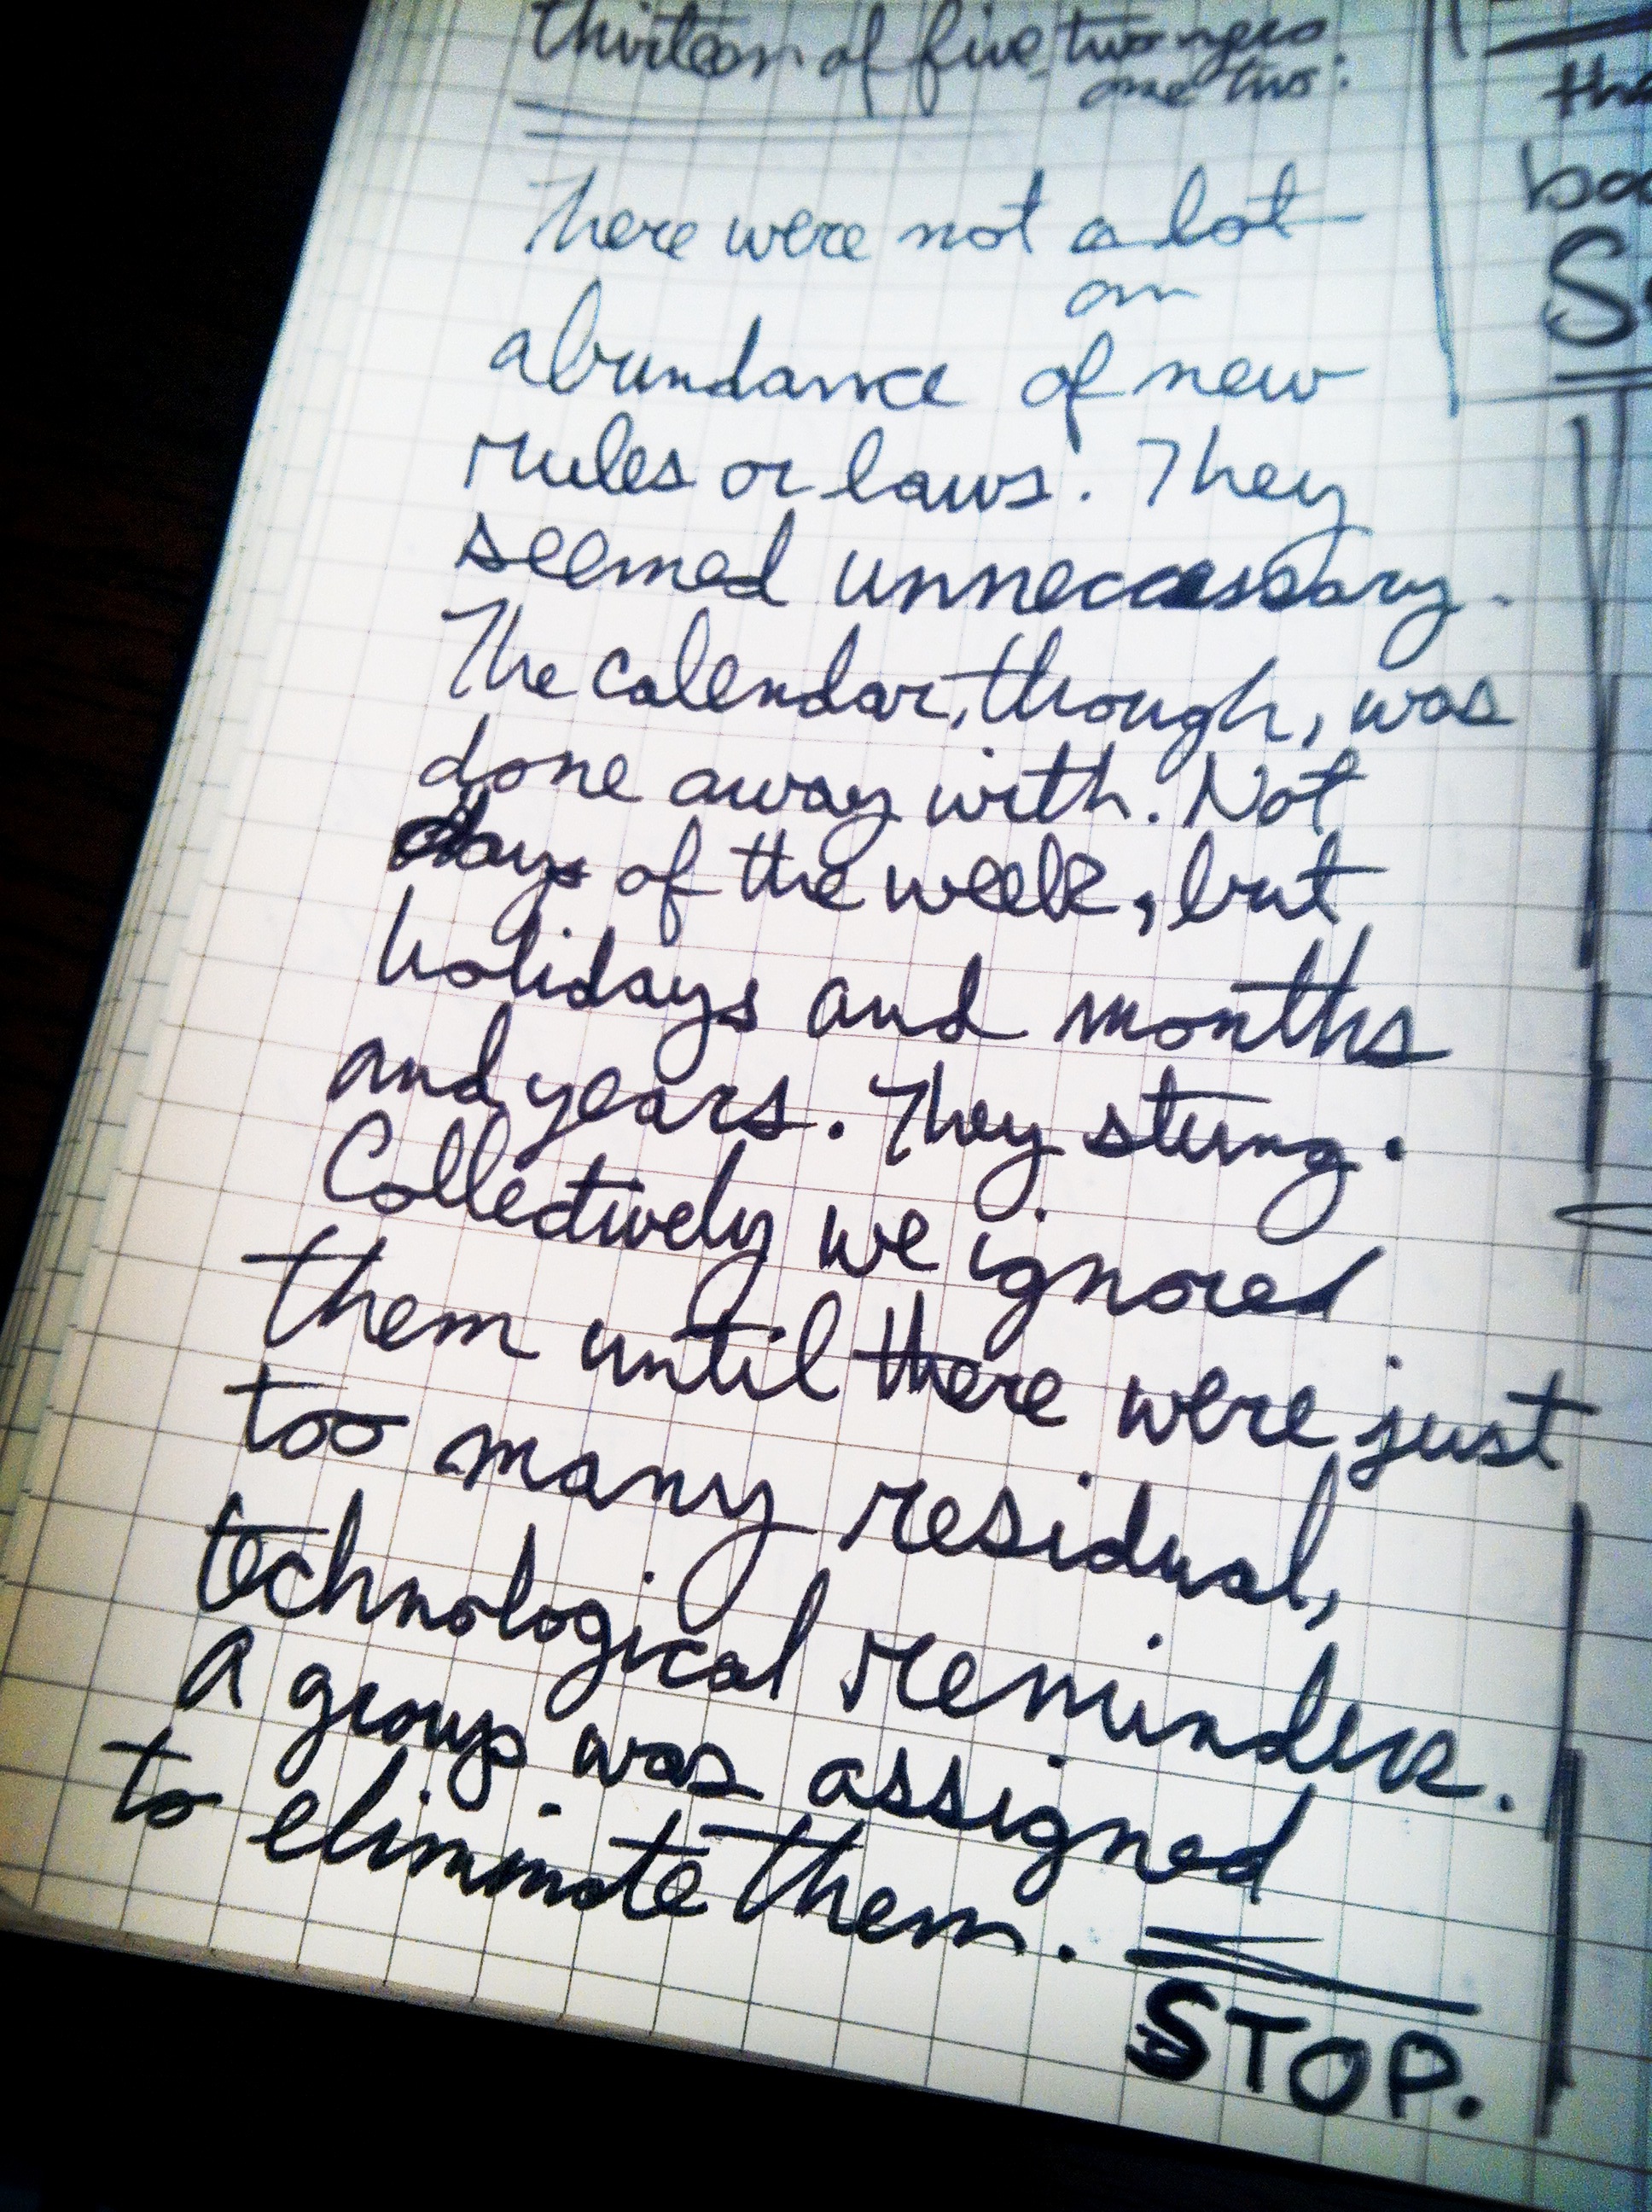 thirteen of five, two zero
one two:
There were not a lot
an
abundance of new
rules or laws. They
seemed unneccessary.
The calendar, though, was
done away with. Not
days of the week, but
holidays and months
and years. They stung.
Collectively we ignored
them until there were just
too many residual,
technological reminders.
A group was assigned
to eliminate them.
STOP.